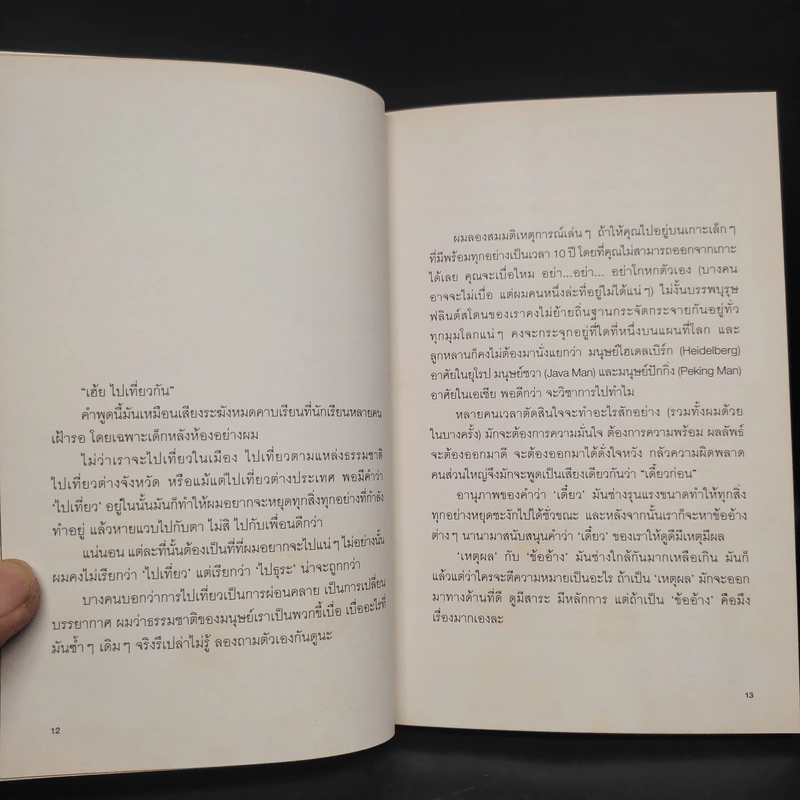 “เฮ้ย ไปเที่ยวกัน”
คำพูดนี้มันเหมือนเสียงระฆังหมดคาบเรียนที่นักเรียนหลายคน
เฝ้ารอ โดยเฉพาะเด็กหลังห้องอย่างผม
ไม่ว่าเราจะไปเที่ยวในเมือง ไปเที่ยวตามแหล่งธรรมชาติ
ไปเที่ยวต่างจังหวัด หรือแม้แต่ไปเที่ยวต่างประเทศ พอมีคำว่า
‘ไปเที่ยว’ อยู่ในนั้นมันก็ทำให้ผมอยากจะหยุดทุกสิ่งทุกอย่างที่กำลัง
ทำอยู่ แล้วหายแวบไปกับตา ไม่สิ ไปกับเพื่อนดีกว่า
แน่นอน แต่ละที่นั้นต้องเป็นที่ที่ผมอยากจะไปแน่ๆ ไม่อย่างนั้น
ผมคงไม่เรียกว่า ‘ไปเที่ยว’ แต่เรียกว่า ‘ไปธุระ’ น่าจะถูกกว่า
บางคนบอกว่าการไปเที่ยวเป็นการผ่อนคลาย เป็นการเปลี่ยน
บรรยากาศ ผมว่าธรรมชาติของมนุษย์เราเป็นพวกขี้เบื่อ เบื่ออะไรที่
มันซ้ำๆ เดิมๆ จริงรึเปล่าไม่รู้ ลองถามตัวเองกันดูนะ
12
ผมลองสมมติเหตุการณ์เล่นๆ ถ้าให้คุณไปอยู่บนเกาะเล็กๆ
ที่มีพร้อมทุกอย่างเป็นเวลา 10 ปี โดยที่คุณไม่สามารถออกจากเกาะ
ได้เลย คุณจะเบื่อไหม อย่า...อย่า... อย่าโกหกตัวเอง (บางคน
อาจจะไม่เบื่อ แต่ผมคนหนึ่งล่ะที่อยู่ไม่ได้แน่ๆ) ไม่งั้นบรรพบุรุษ
ฟลินต์สโตนของเราคงไม่ย้ายถิ่นฐานกระจัดกระจายกันอยู่ทั่ว
ทุกมุมโลกแน่ๆ คงจะกระจุกอยู่ที่ใดที่หนึ่งบนแผนที่โลก และ
ลูกหลานก็คงไม่ต้องมานั่งแยกว่า มนุษย์ไฮเดลเบิร์ก (Heidelberg)
อาศัยในยุโรป มนุษย์ชวา (Java Man) และมนุษย์ปักกิ่ง (Peking Man)
อาศัยในเอเชีย พอดีกว่า จะวิชาการไปทำไม
หลายคนเวลาตัดสินใจจะทำอะไรสักอย่าง (รวมทั้งผมด้วย
ในบางครั้ง) มักจะต้องการความมั่นใจ ต้องการความพร้อม ผลลัพธ์
จะต้องออกมาดี จะต้องออกมาได้ดั่งใจหวัง กลัวความผิดพลาด
คนส่วนใหญ่จึงมักจะพูดเป็นเสียงเดียวกันว่า “เดี๋ยวก่อน”
อานุภาพของคำว่า ‘เดี๋ยว’ มันช่างรุนแรงขนาดทำให้ทุกสิ่ง
ทุกอย่างหยุดชะงักไปได้ชั่วขณะ และหลังจากนั้นเราก็จะหาข้ออ้าง
ต่างๆ นานามาสนับสนุนคำว่า ‘เดี๋ยว’ ของเราให้ดูดีมีเหตุมีผล
‘เหตุผล’ กับ ‘ข้ออ้าง’ มันช่างใกล้กันมากเหลือเกิน มันก็
แล้วแต่ว่าใครจะตีความหมายเป็นอะไร ถ้าเป็น ‘เหตุผล’ มักจะออก
มาทางด้านที่ดี ดูมีสาระ มีหลักการ แต่ถ้าเป็น ‘ข้ออ้าง’ คือมึง
เรื่องมากเองละ
13